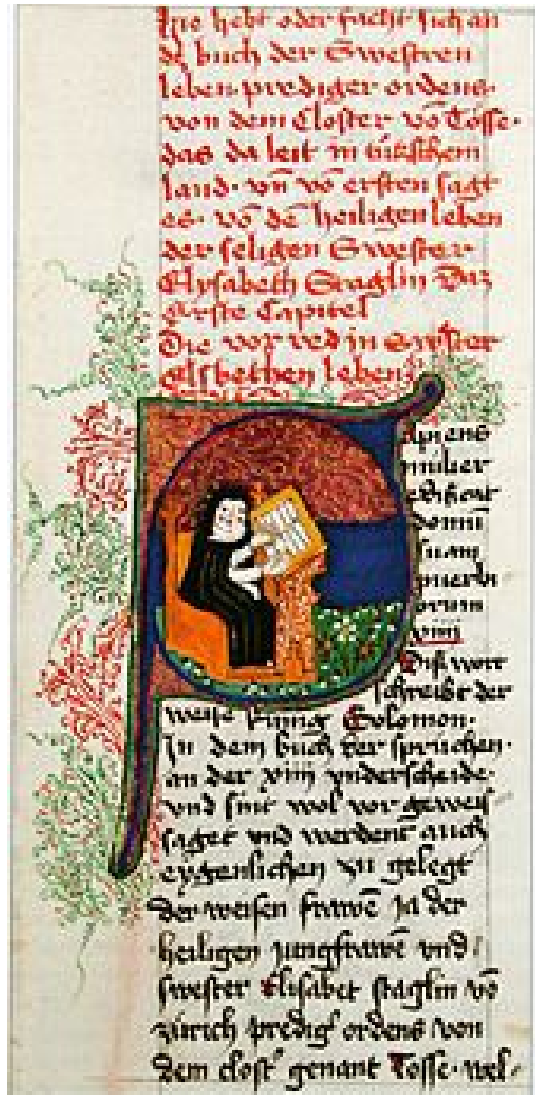 Hye hebt oder facht sich an
dz buch der Swestren
leben prediger ordens·
von dem Closter vo̅ Tösse·
das da leit in türstkem
land· vn̅ vo̅ ersten sagt
es· vo̅ de̅ heiligen leben
der seligen Swester·
Elysabeth Staglin Daz
erste Capitel
Die vor red in swester
elsbethen leben
apiens
mulier
edificat
domu̅
suam
puerbi
orum
xiiij
Diß wort
schreibt der
weise kunig Solomon·
In dem buch der spruchen·
an der xiiij vnderscheide·
vnd sint wol vor geweis
saget vnd werdent auch
eygenlichen zu gelegt
der weisen frawe̅ Ja der
heiligen jungfrawe̅ vnd
swester Elisabet staglin vo̅
zürich predig' ordens von
dem clost' genant Tosse· wel·